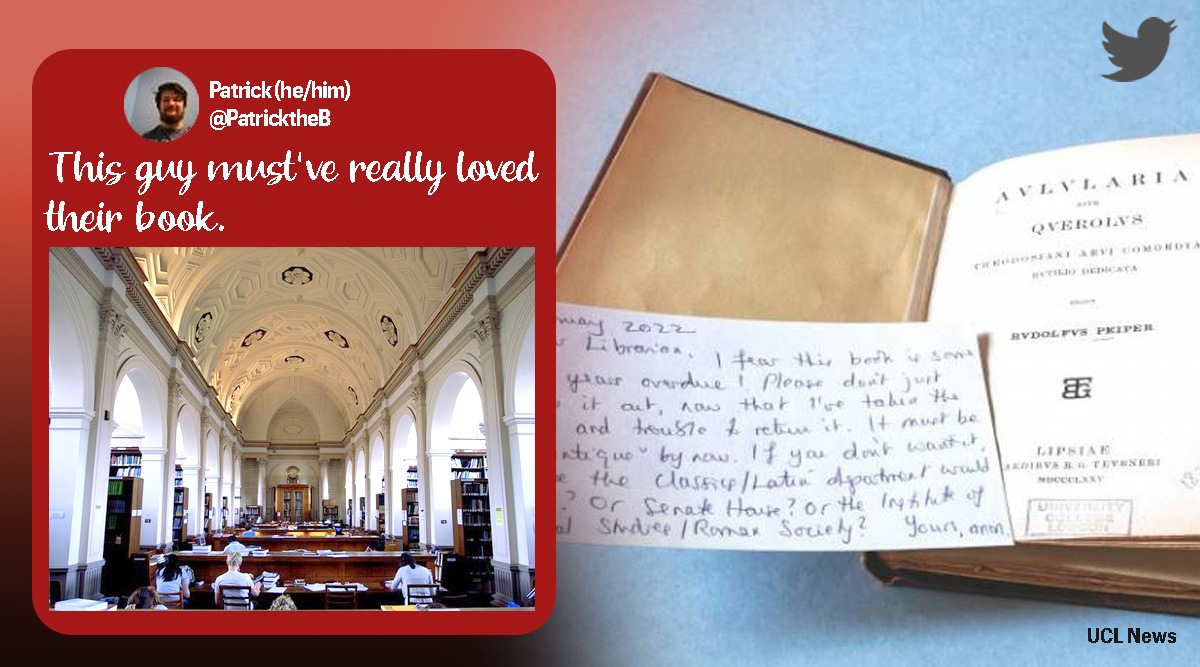 Patrick (he/him)
@PatricktheB
This guy must've really loved
their book.
may 2022
Librarian. I fear this book is some
years overdue! Please don't just
it out, now that I've taken the
and trouble to return it. It must be
by now. If you don't want it
the Classics/Latin department would
? Or Senate House? Or the Institute of
Studies/Roman Society? Yours, anon.
AVLVLARIA
SIVE
QVEROLVS
THEODOSIANI AEVI COMOEDIA
RVTILIO DEDICATA
RVDOLFVS PEIPER
LIPSIAE
AEDIBVS B. G. TEVBNERI
MDCCCLXXV
UNIVERSITY
COLLEGE
LONDON
UCL News